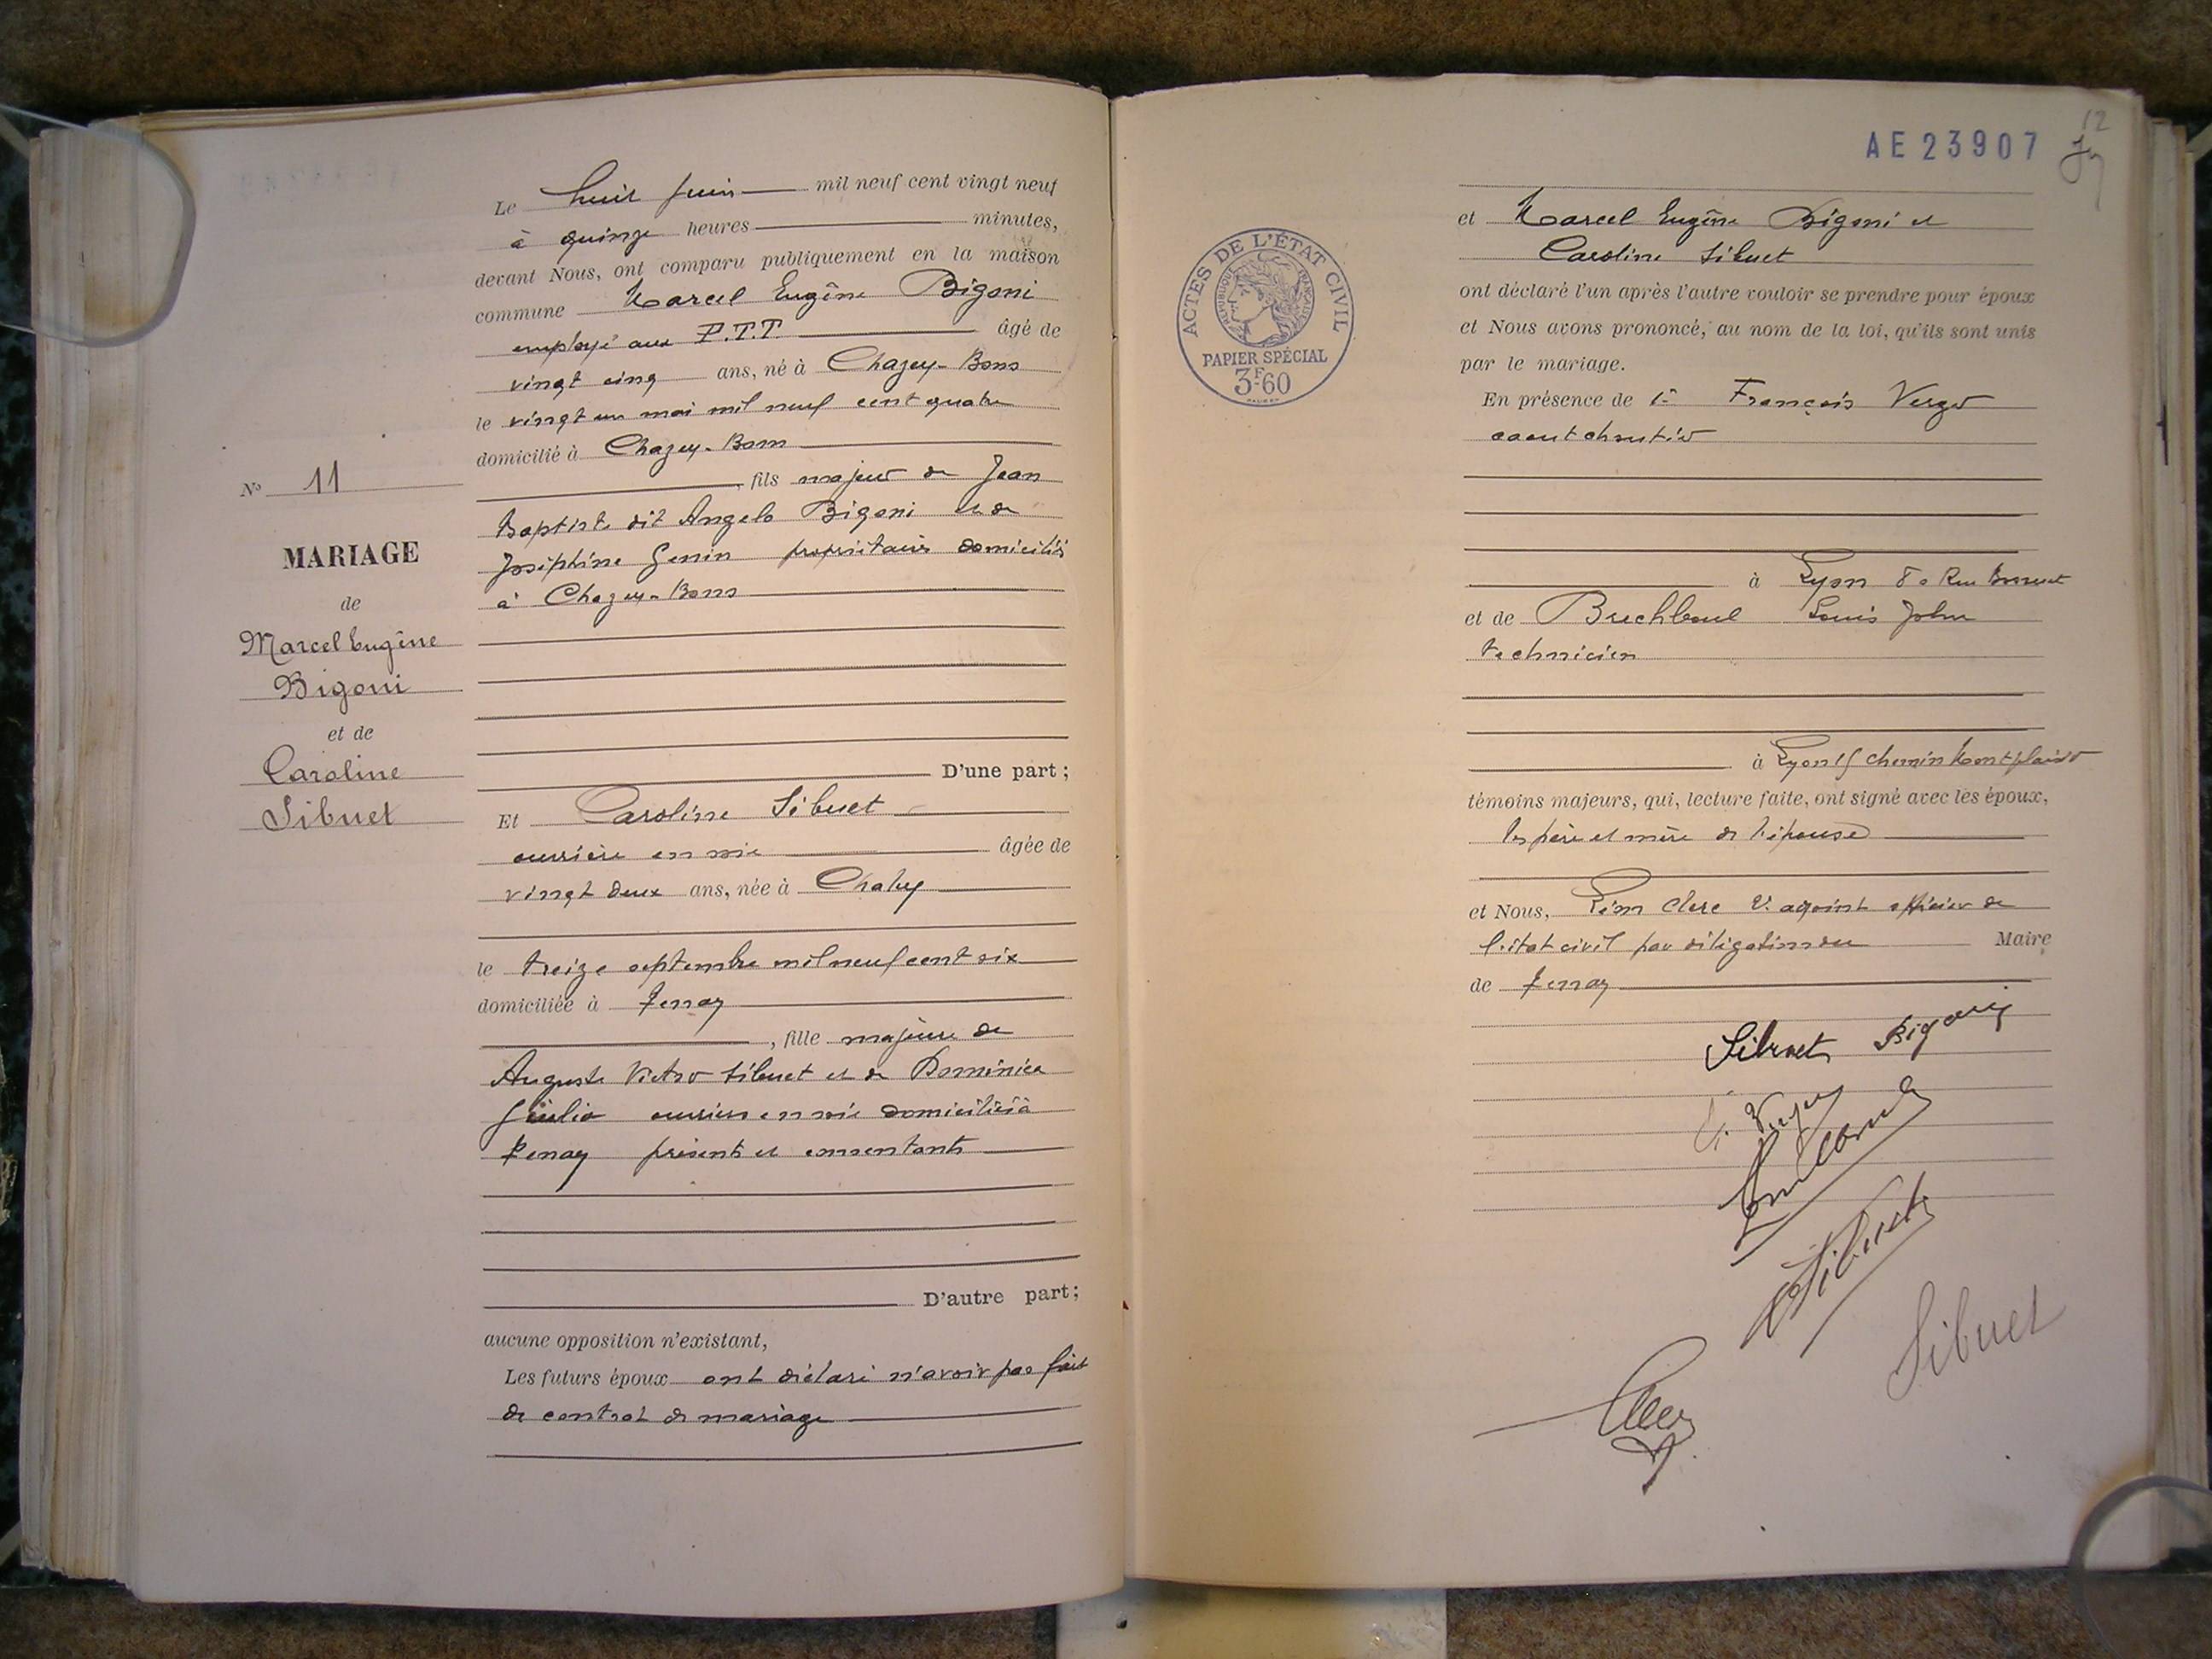 Le huit juin mil neuf cent vingt neuf
à quinze heures minutes,
devant Nous, ont comparu publiquement en la maison
commune Marcel Eugène Bigoni
employé aux P.T.T. âgé de
vingt cinq ans, né à Chazey-Bons
le vingt un mai mil neuf cent quatre
domicilié à Chazey-Bons
, fils majeur de Jean
Baptiste dit Angelo Bigoni et de
Joséphine Genin propriétaires domiciliés
à Chazey-Bons
D'une part ;
N° 11
MARIAGE
de
Marcel Eugène
Bigoni
et de
Caroline
Sibuet
Et Caroline Sibuet
ouvrière en soie âgée de
vingt deux ans, née à
le treize septembre mil neuf cent six
domiciliée à Tenay
, fille majeure de
Auguste Victor Sibuet et de Dominica
Giulio ouvriers en soie domiciliés à
Tenay présents et consentants
D'autre part ;
aucune opposition n'existant,
Les futurs époux ont déclaré n'avoir pas fait
de contrat de mariage
AE 23907
12
ACTES DE L'ÉTAT CIVIL
RÉPUBLIQUE FRANÇAISE
PAPIER SPÉCIAL
3F60
et Marcel Eugène Bigoni et
Caroline Sibuet
ont déclaré l'un après l'autre vouloir se prendre pour époux
et Nous avons prononcé, au nom de la loi, qu'ils sont unis
par le mariage.
En présence de François
caoutchoutier
à Lyon Rue
et de Louis John
technicien
à Lyon chemin Montplaisir
témoins majeurs, qui, lecture faite, ont signé avec les époux,
les père et mère de l'épouse
et Nous, Clerc adjoint officier de
l'état civil par délégation du Maire
de Tenay
Sibuet Bigoni
Sibuet
Sibuet